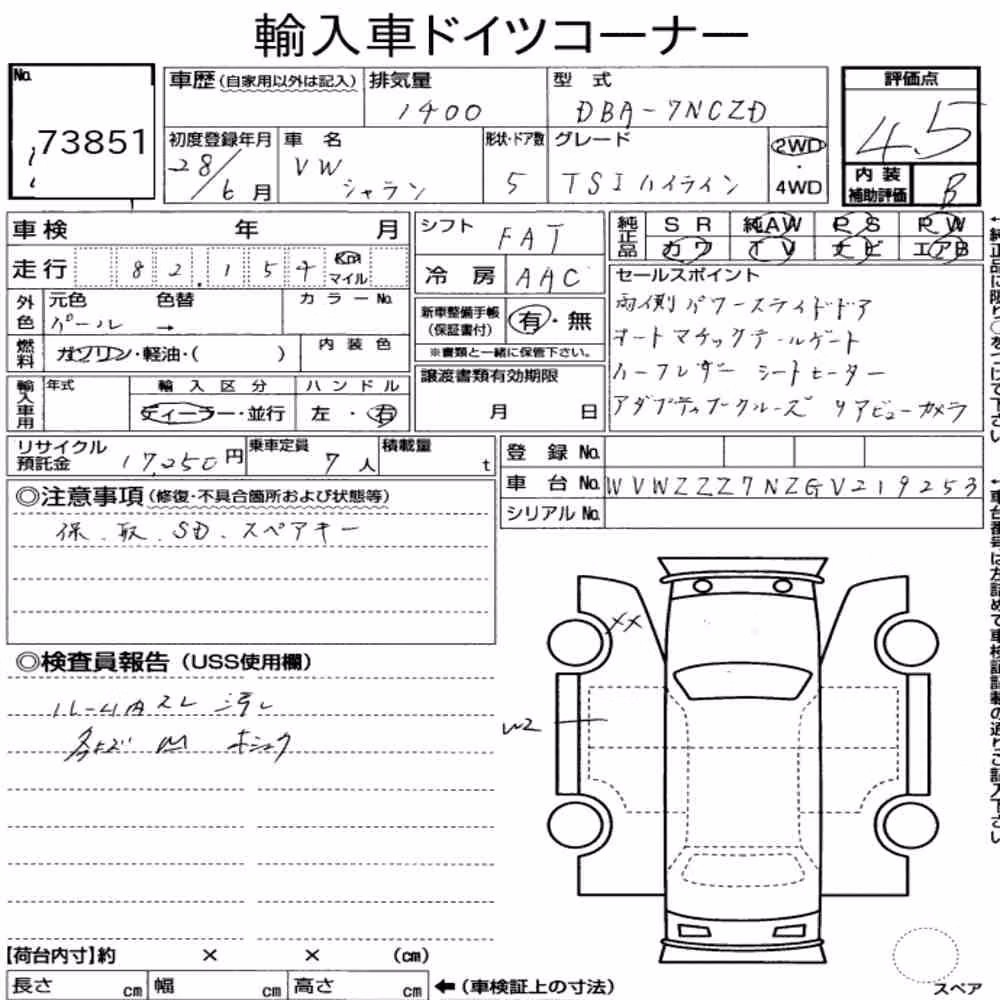 輸入車ドイツコーナー
No. 73851
車歴(自家用以外は記入)
排気量 1400
型式 DBA-7NCZD
評価点 4.5
初度登録年月 28/6月
車名 VW シャラン
形状・ドア数 5
グレード TSI ハイライン
2WD・4WD
内装補助評価 B
車検 年 月
シフト FAT
純正品 SR 純AW PS PW
カワ TV ナビ エアB
走行 82,154 Km マイル
冷房 AAC
セールスポイント
両側パワースライドドア
オートマチックテールゲート
ハーフレザー シートヒーター
アダプティブクルーズ リアビューカメラ
外色 元色 パール 色替 → カラーNo.
新車整備手帳(保証書付) 有・無
※書類と一緒に保管下さい。
燃料 ガソリン・軽油・( ) 内装色
譲渡書類有効期限 月 日
輸入車用 年式 輸入区分 ディーラー・並行 ハンドル 左・右
リサイクル預託金 17,250円
乗車定員 7人
積載量 t
登録No.
車台No. WVWZZZ7NZGV219253
シリアルNo.
◎注意事項(修復・不具合箇所および状態等)
保.取.SD.スペアキー
◎検査員報告(USS使用欄)
ルーム内スレ 汚レ
XX
W2
【荷台内寸】約 × × (cm)
長さ cm 幅 cm 高さ cm ←(車検証上の寸法)
スペア
←純正品に限り○をつけて下さい
←車台番号は左詰めで車検証記載の通りご記入下さい